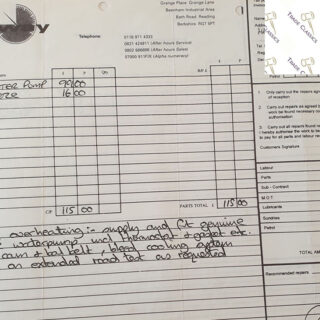 Grange Place Grange Lane
Beenham Industrial Area
Bath Road, Reading
Berkshire RG7 5PT
Telephone:
(After Hours Service)
(After Hours Sales)
(Alpha numeric)
TIMOR CLASSICS
£
TER PUMP 99 00
16 00
C/F 115 00
PARTS TOTAL £ 115 00
1. Only carry out the repairs agreed
of reception.
2. Carry out repairs as agreed
be work found
authorisation.
3. Carry out all repairs found
I hereby authorise the work to be
to pay for all parts and labour
Customers Signature
Labour
Parts
Sub - Contract
M.O.T
Lubricants
Sundries
Petrol
TOTAL AMO
Recommended repairs
overheating :- supply and fit genuine
waterpump, incl thermostat & gasket etc.
cam & bal belt, bleed cooling system
on extended road test as requested